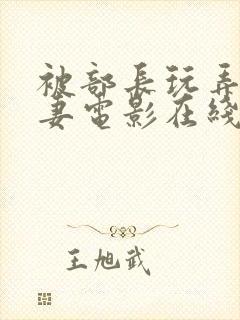 被部長玩弄
妻電影在綫
王旭武